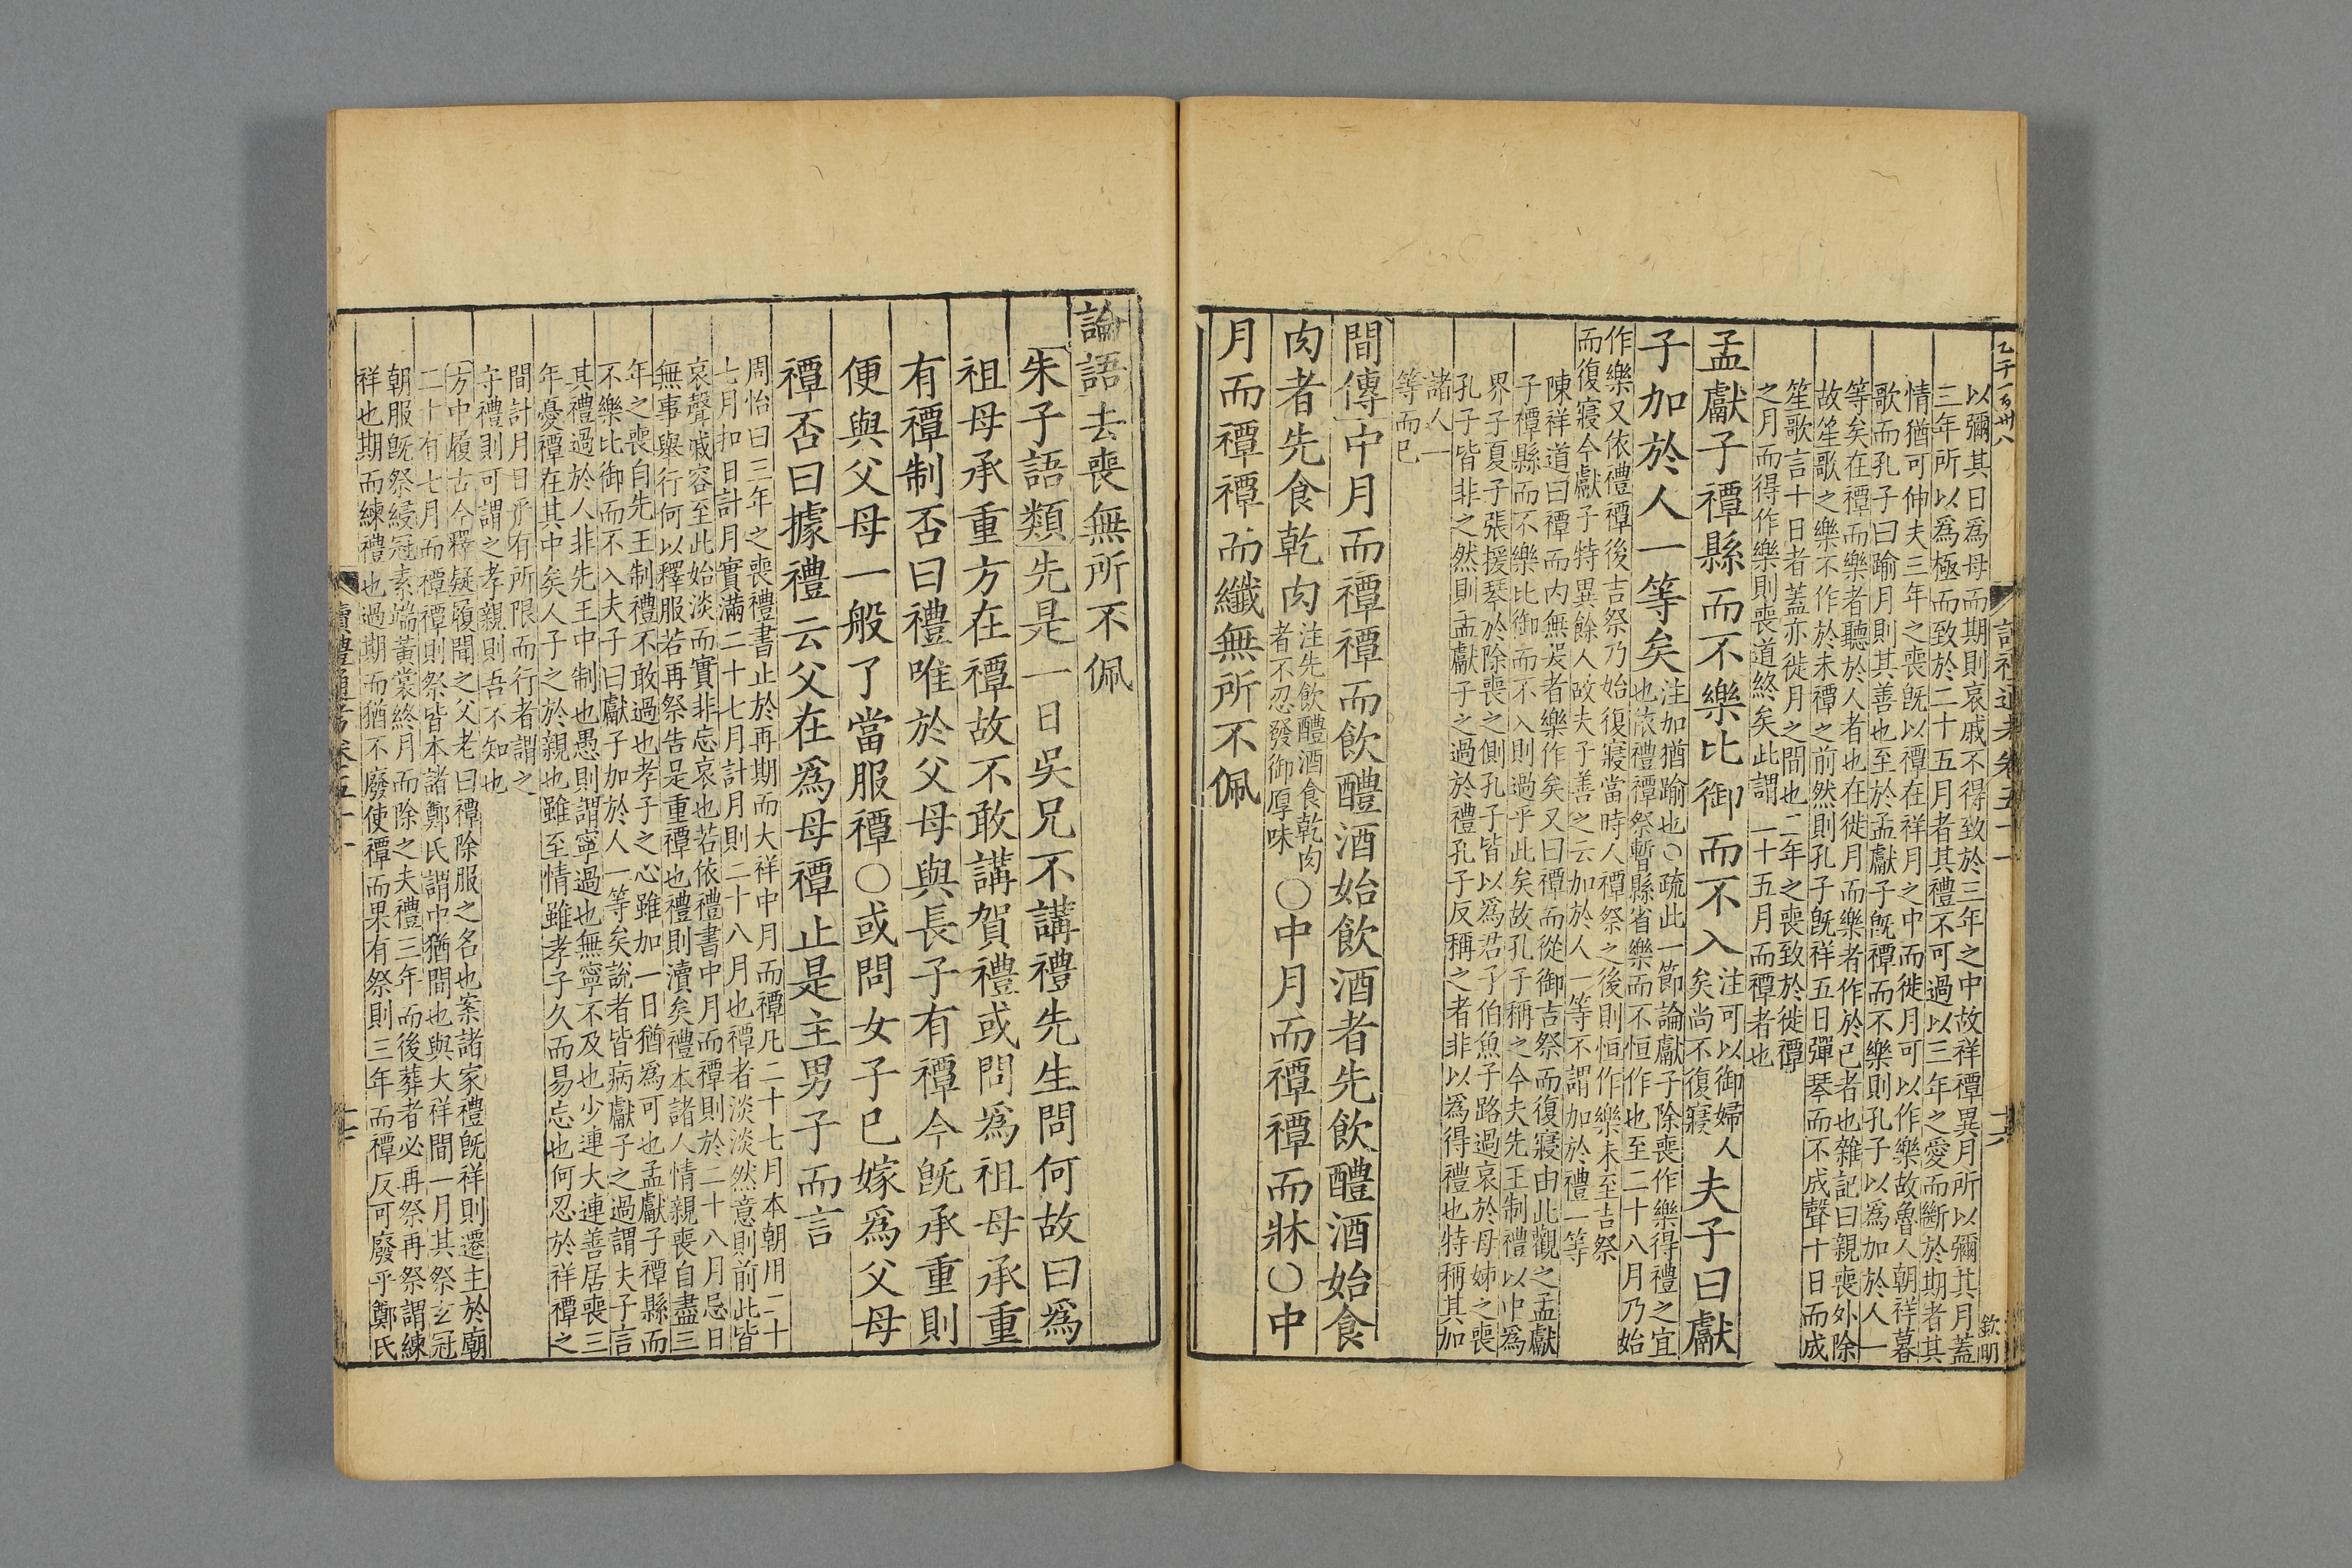 以彌其日爲母而期則哀戚不得致於三年之中故祥禫異月所以彌其月蓋
三年所以爲極而致於二十五月者其禮不可過以三年之愛而斷於期者其
情猶可伸夫三年之喪旣以禫在祥月之中而徙月可以作樂故魯人朝祥暮
歌而孔子曰踰月則其善也至於孟獻子旣禫而不樂則孔子以爲加於人一
等矣在禫而樂者聽於人者也在徙月而樂者作於已者也雜記曰親喪外除
故笙歌之樂不作於未禫之前然則孔子旣祥五日彈琴而不成聲十日而成
笙歌言十日者蓋亦徙月之間也二年之喪致於徙禫
之月而得作樂則喪道終矣此謂二十五月而禫者也
孟獻子禫縣而不樂比御而不入注可以御婦人矣尚不復寢夫子曰獻
子加於人一等矣注加猶踰也○疏此一節論獻子除喪作樂得禮之宜也依禮禫祭暫縣省樂而不恒作也至二十八月乃始
作樂又依禮禫後吉祭乃始復寢當時人禫祭之後則恒作樂未至吉祭
而復寢今獻子特異餘人故夫子善之云加於人一等不謂加於禮一等
陳祥道曰禫而內無哭者樂作矣又曰禫而從御吉祭而復寢由此觀之孟獻
子禫縣而不樂比御而不入則過乎此矣故孔子稱之今夫先王制禮以中爲
界子夏子張援琴於除喪之側孔子皆以爲君子伯魚子路過哀於母姊之喪
孔子皆非之然則孟獻子之過於禮孔子反稱之者非以爲得禮也特稱其加
諸人一
等而已
間傳中月而禫禫而飲醴酒始飲酒者先飲醴酒始食
肉者先食乾肉注先飲醴酒食乾肉者不忍發御厚味○中月而禫禫而牀○中
月而禫禫而纖無所不佩
論語去喪無所不佩
朱子語類先是一日吳兄不講禮先生問何故曰爲
祖母承重方在禫故不敢講賀禮或問爲祖母承重
有禫制否曰禮唯於父母與長子有禫今旣承重則
便與父母一般了當服禫○或問女子已嫁爲父母
禫否曰據禮云父在爲母禫止是主男子而言
周怡曰三年之喪禮書止於再期而大祥中月而禫凡二十七月本朝用二十
七月扣日計月實滿二十七月計月則二十八月也禫者淡淡然意則前此皆
哀聲戚容至此始淡而實非忘哀也若依禮書中月而禫則於二十八月忌日
無事舉行何以釋服若再祭告是重禫也禮則瀆矣禮本諸人情親喪自盡三
年之喪自先王制禮不敢過也孝子之心雖加一日猶爲可也孟獻子禫縣而
不樂比御而不入夫子曰獻子加於人一等矣說者皆病獻子之過謂夫子言
其禮過於人非先王中制也愚則謂寧過也無寧不及也少連大連善居喪三
年憂禫在其中矣人子之於親也雖至情雖孝子久而易忘也何忍於祥禫之
間計月日乎有所限而行者謂之
守禮則可謂之孝親則吾不知也
方中履古今釋疑履聞之父老曰禫除服之名也案諸家禮旣祥則遷主於廟
二十有七月而禫禫則祭皆本諸鄭氏謂中猶間也與大祥間一月其祭玄冠
朝服旣祭綅冠素端黃裳終月而除之夫禮三年而後葬者必再祭再祭謂練
祥也期而練禮也過期而猶不廢使禫而果有祭則三年而禫反可廢乎鄭氏
讀禮通考卷五十一